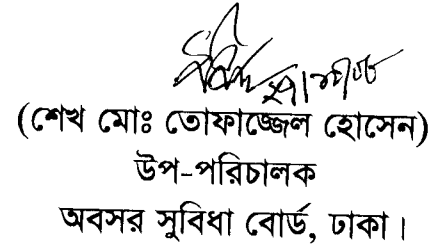 (শেখ মোঃ তোফাজ্জেল হোসেন)
উপ-পরিচালক
অবসর সুবিধা বোর্ড, ঢাকা।